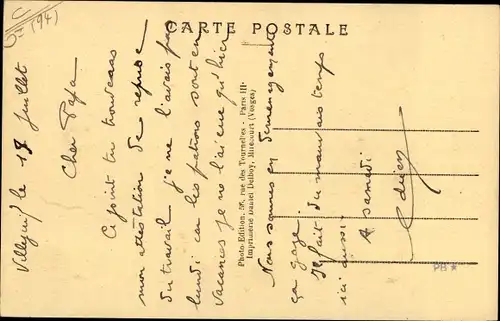 CARTE POSTALE
(94)
Villejuif le 18 Juillet
Cher Papa
Ci joint tu trouveras
mon attestation de reprise
du travail je ne l'avais pas
lundi car les patrons sont en
vacances je ne l'ai eue qu'hier
Nous sommes en demenagement
ça gaze.
Il fait du mauvais temps
ici aussi.
A samedi
Photo-Edition, 96, rue des Tournelles - Paris III·
Imprimerie Daniel Delboy, Mirecourt (Vosges)
PH